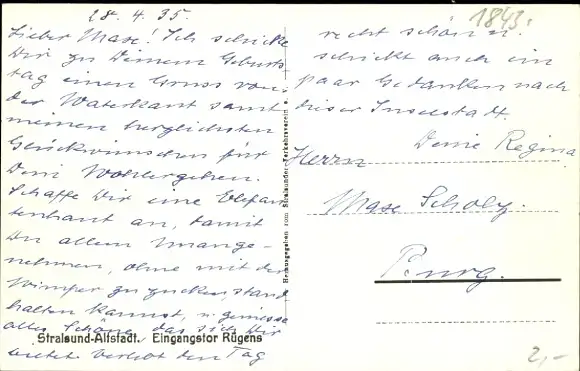 28. 4. 35.
Lieber Maxe! Ich schicke
Dir zu Deinem Geburts
tag einen Gruss von
der Waterkant samt
meinen herzlichsten
Glückwünschen für
Dein Wohlergehen.
Schaffe Dir eine Elefan
tenhaut an, damit
Du allem Unange-
nehmen, ohne mit der
Wimper zu zucken, stand
halten kannst, u. geniesse
alles Schöne, das sich Dir
bietet. Verlebt den Tag
recht schön u.
schickt auch ein
paar Gedanken nach
dieser Inselstadt.
Deine Regina
Herrn
Maxe Scholz.
Burg.
1843:
2,-
Herausgegeben vom Stralsunder Verkehrsverein e.
Stralsund-Altstadt. Eingangstor Rügens